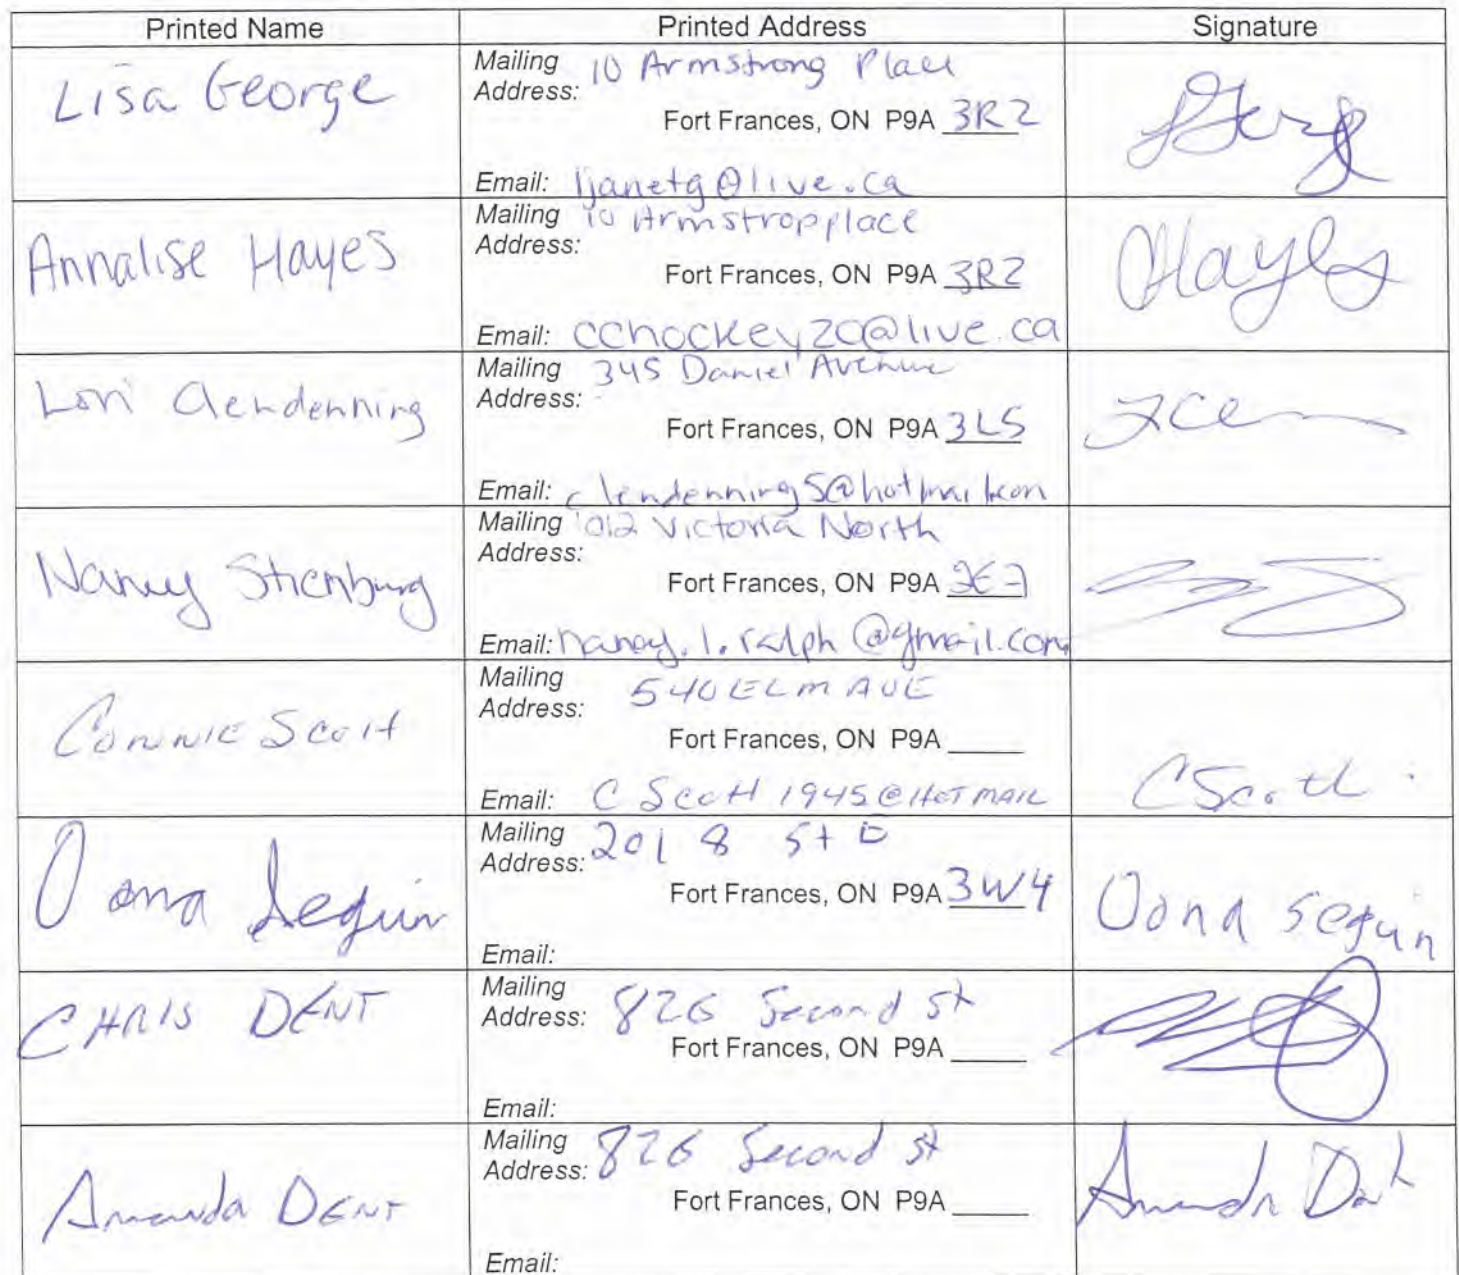 Printed Name Printed Address Signature
Lisa George
Mailing Address: 10 Armstrong Place
Fort Frances, ON P9A 3R2
Email: ljanetg@live.ca
Annalise Hayes
Mailing Address: 10 Armstropplace
Fort Frances, ON P9A 3R2
Email: cchockey20@live.ca
Hayes
Lori Clendenning
Mailing Address: 345 Daniel Avenue
Fort Frances, ON P9A 3L5
Email: clendenning5@hotmail.com
Nancy Stienburg
Mailing Address: 1012 Victoria North
Fort Frances, ON P9A 2E7
Email: nancy.l.ralph@gmail.com
Connie Scott
Mailing Address: 540 ELM AVE
Fort Frances, ON P9A ____
Email: CScott1945@HOTMAIL
CScott
Oona Seguin
Mailing Address: 201 8 St E
Fort Frances, ON P9A 3W4
Email:
Oona Seguin
CHRIS DENT
Mailing Address: 826 Second st
Fort Frances, ON P9A ____
Email:
Amanda DENT
Mailing Address: 826 Second st
Fort Frances, ON P9A ____
Email:
Amanda Dent